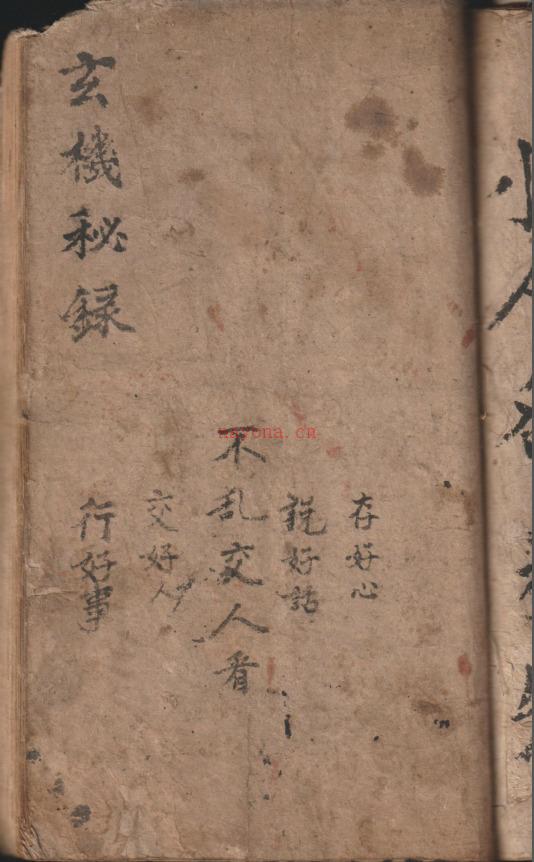 存好心
説好話
不乱交人看
交好人
行好事
玄機秘録
nayona.cn